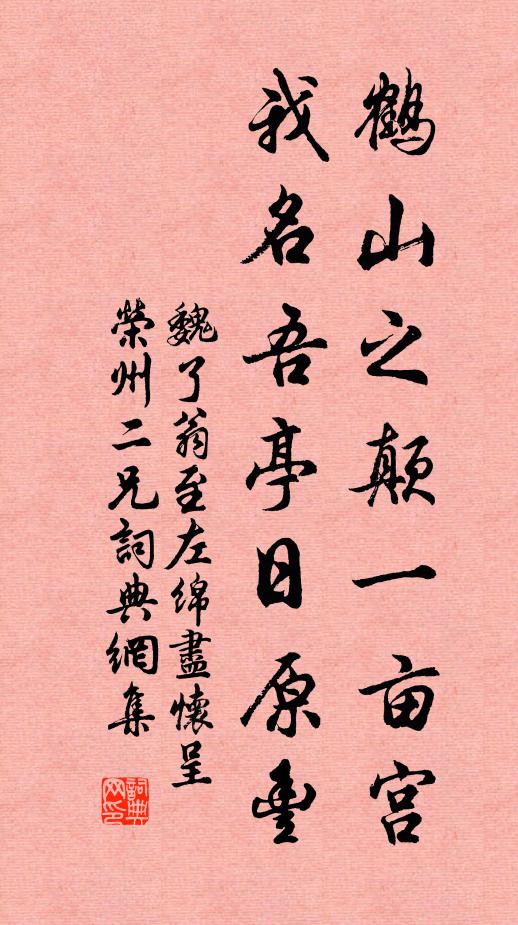 鶴山之顛一亩宫
我名吾亭日原豐
魏了翁至左绵盡懷呈
榮州二兄詞典網集
詞典网印